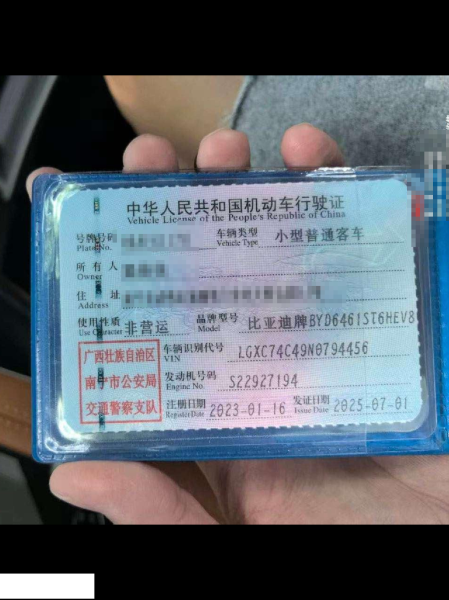 中华人民共和国机动车行驶证
Vehicle License of the People's Republic of China
号牌号码 车辆类型 小型普通客车
Plate No. Vehicle Type
所有人
Owner
住址
Address
使用性质 非营运 品牌型号 比亚迪牌BYD6461ST6HEV8
Use Character Model
广西壮族自治区
南宁市公安局
交通警察支队
车辆识别代号 LGXC74C49N0794456
VIN
发动机号码 S22927194
Engine No.
注册日期 2023-01-16 发证日期 2025-07-01
Register Date Issue Date